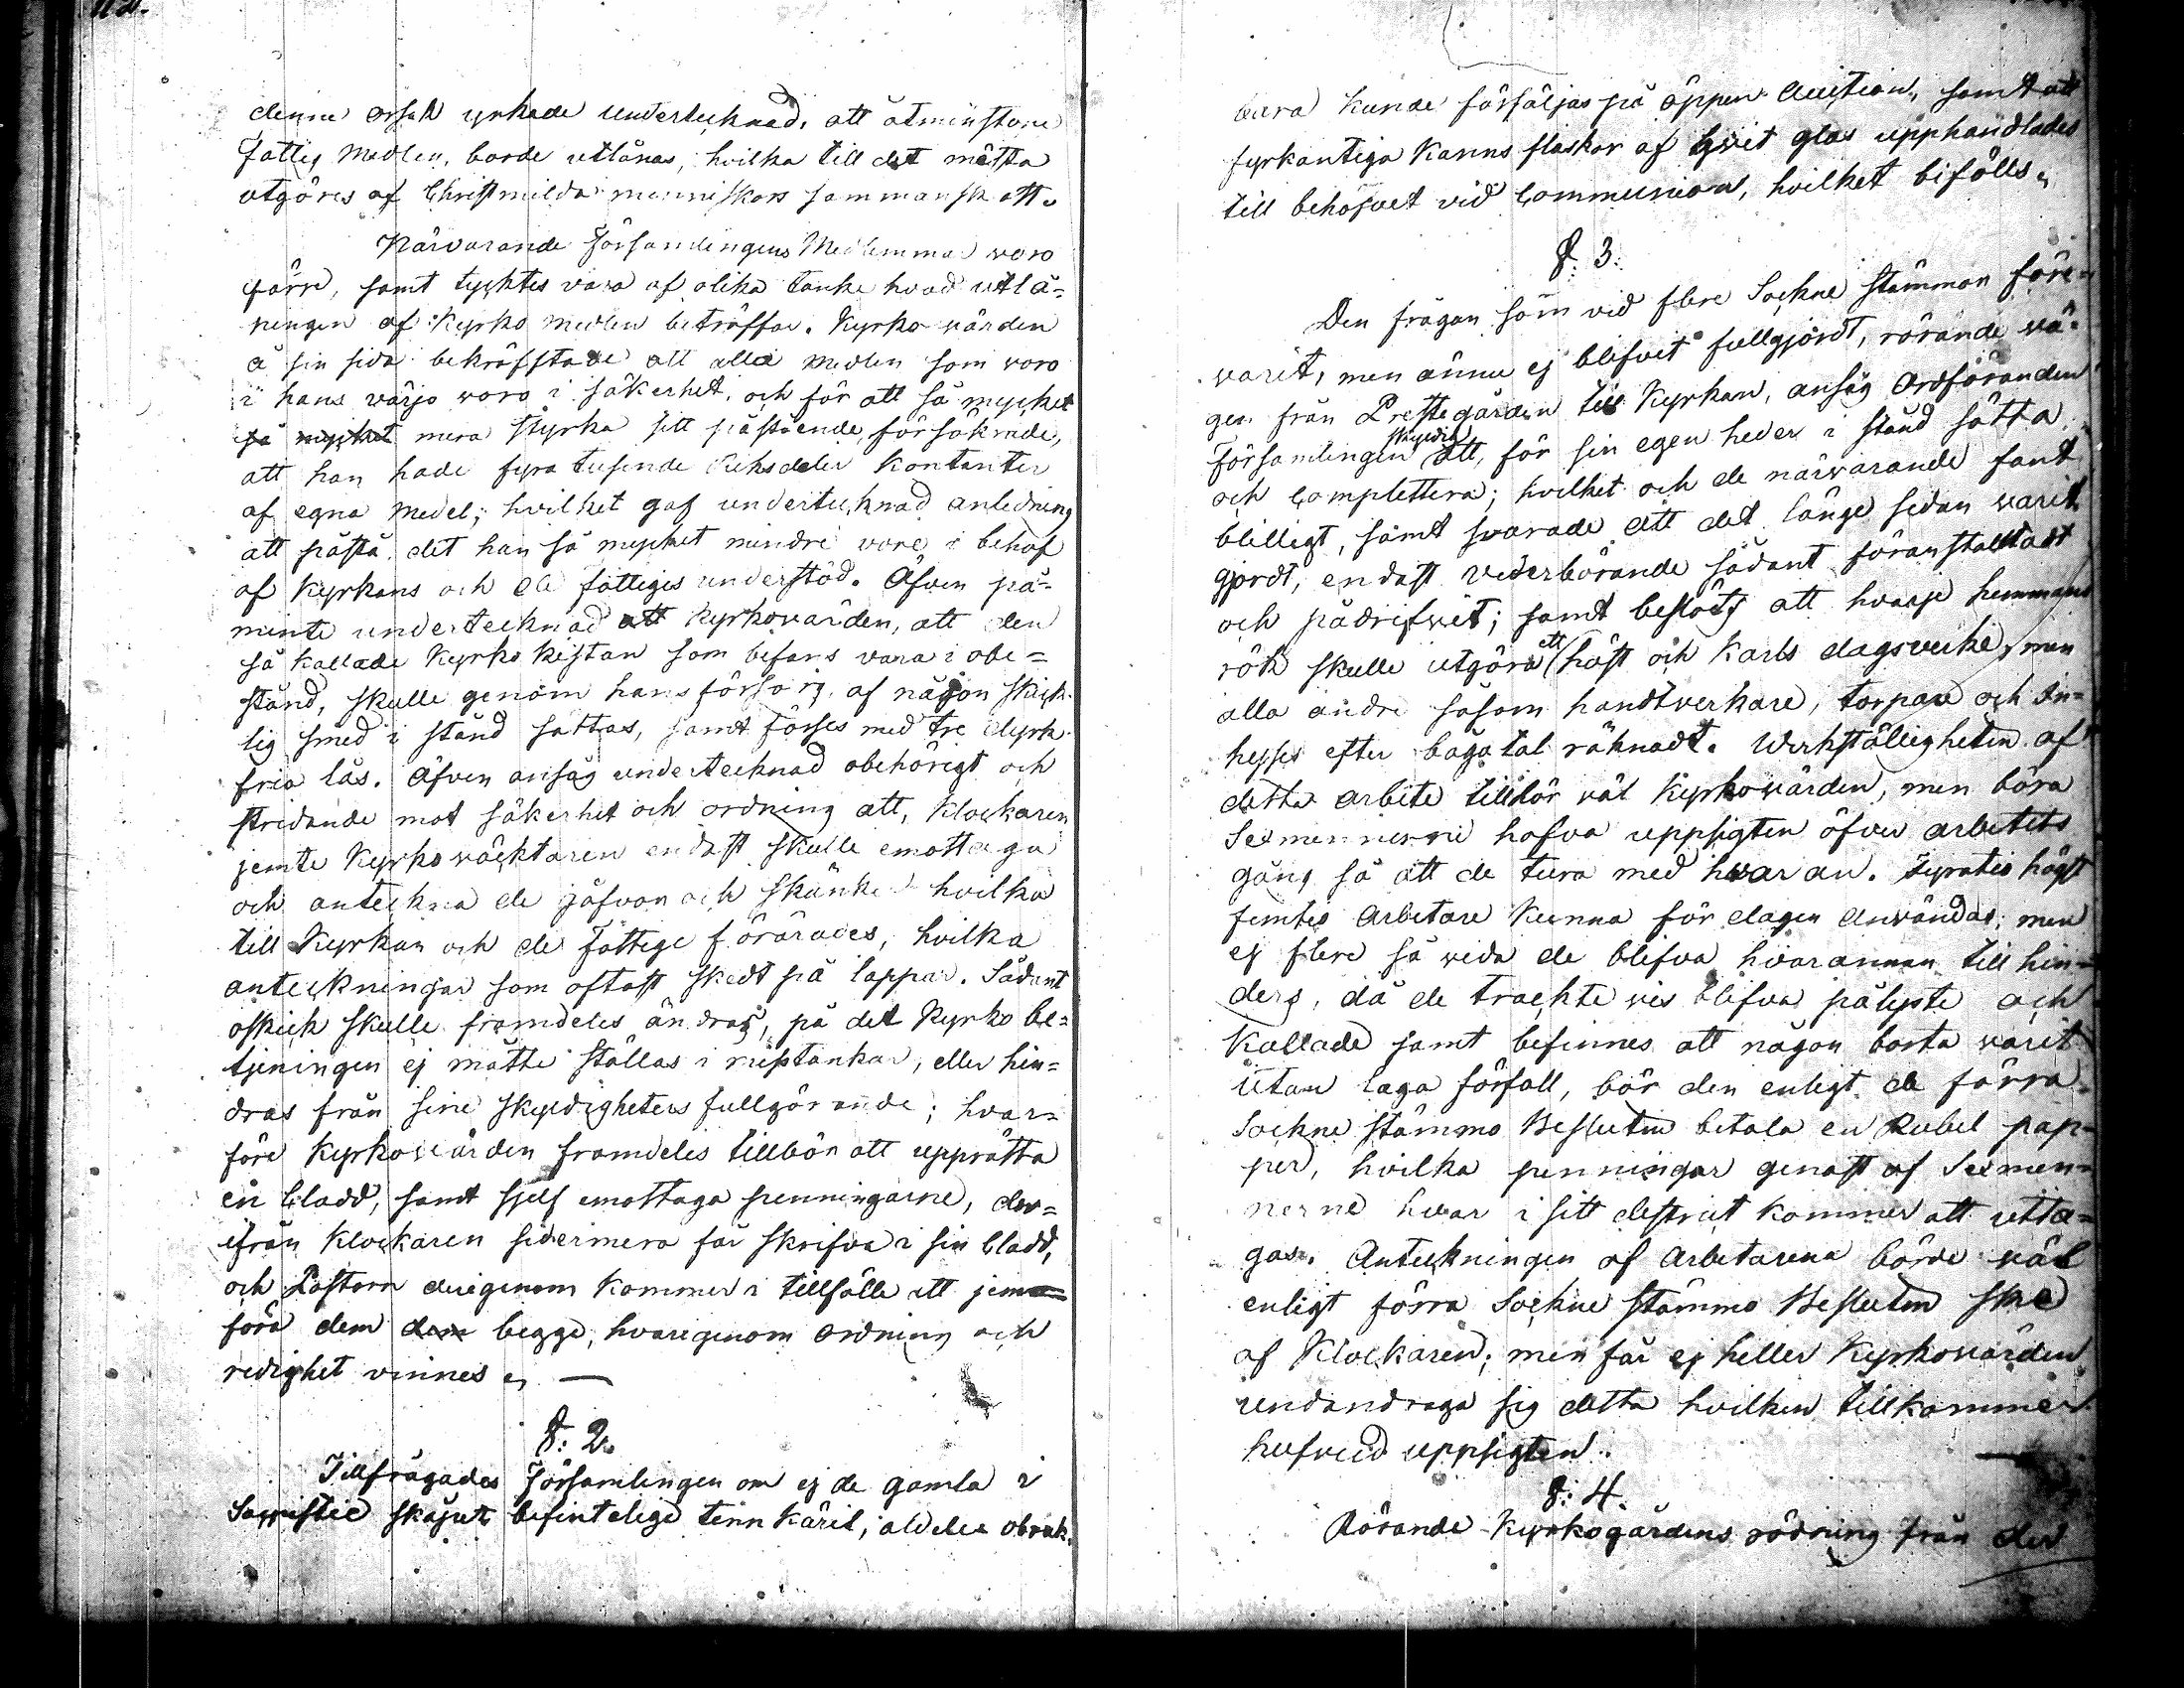 denne orsak yrkade undertecknad, att åtminstone
Fattig Medlen, borde utlånas, hvilka till det mästa
utgöres af Christmilda menniskors sammanskott.
Närvarande Församlingens Medlemmar voro
färre, samt tycktes vara af olika tanke hvad utlå=
ningen af Kyrko medlen beträffar. Kyrko värden
å sin sida bekräfftade att alla medlen som voro
i hans värjo voro i säkerhet, och för att så mycket
så mycket mera styrka sitt påstående, försäkrade,
att han hade fyra tusende Riksdaler Kontanter
af egna medel; hvilket gaf undertecknad anledning
att påstå det han så mycket mindre vore i behof
af Kyrkans och de fattiges understöd. Äfven på=
minte undertecknad att Kyrkovärden, att den
så kallade Kyrko Kistan som befans vara i obe=
stånd, skulle genom hans försorg af någon skick=
lig smed i stånd sättas, samt förses med tre dyrk
fria lås. Äfven ansåg undertecknad obehörigt och
stridande mot säkerhet och ordning att, Klockaren
jemte Kyrkoväcktaren endast skulle emottaga
och anteckna de gåfvor och skänker hvilka
till Kyrkan och de Fattige förärades, hvilka
anteckningar som oftast skedt på lappar. Sådant
oskick skulle framdeles ändras, på det Kyrko be=
tjeningen ej måtte ställas i misstankar, eller hin=
dras från sine skyldigheters fullgörande; hvar=
före Kyrkovärden framdeles tillbör att upprätta
en Cladd, samt sjelf emottaga penningarne, der=
ifrån Klockaren sidermera får skrifva i sin Cladd,
och Pastorn derigenom kommer i tillfälle att jem=
föra dem dem begge, hvarigenom ordning och
redighet vinnes. —
§. 2.
Tillfrågades Församlingen om ej de gamla i
Sacristie skåpet befintelige tenn käril, aldeles obruk.
bara kunde försäljas på öppen Auction, samt att
fyrkantiga Kanns flaskor af hvit glas upphandlades
till behofvet vid Communion, hvilket bifölls.
§. 3.
Den frågan som vid flere Sockne stämmor före=
varit, men ännu ej blifvit fullgjordt, rörande vä=
gen från Prestegården till Kyrkan, ansåg Ordföranden
skyldig
Församlingen att, för sin egen heder i stånd sätta
och Complettera; hvilket och de närvarande fant
billigt, samt svarade att det länge sidan varit
gjordt, endast vederbörande sådant föranstalltadt
och pådrifvit; samt beslöts att hvarje hemmans
rök skulle utgöra ett häst och Karls dagsverke, men
alla andre såsom handtverkare, torpare och In=
hyses efter bågatal räknadt. Werkställigheten af
detta arbete tillhör väl Kyrkovärden, men böra
Sexmennerne hafva uppsigten öfver arbetets
gång så att de tura med hvaran. Fyratio högst
femtio Arbetare kunna för dagen användas, men
ej flere så vida de blifva hvarannan till hin=
ders, då de tracktevis blifva pålyste och
Kallade samt befinnes att någon borta varit
utan laga förfall, bör den enligt de förra
Sockne stämmo Besluten betala en Rubel pap=
per, hvilka penningar genast af Sexmen=
nerne hvar i sitt destrict kommer att utta=
gas. Anteckningen af Arbetarena börde väl
enligt förra Sockne stämmo Besluten ske
af Klockaren; men får ej heller Kyrkovärden
undandraga sig detta hvilken tillkommer
hufvud uppsigten. —
§. 4.
Rörande Kyrkogårdens rödning från der